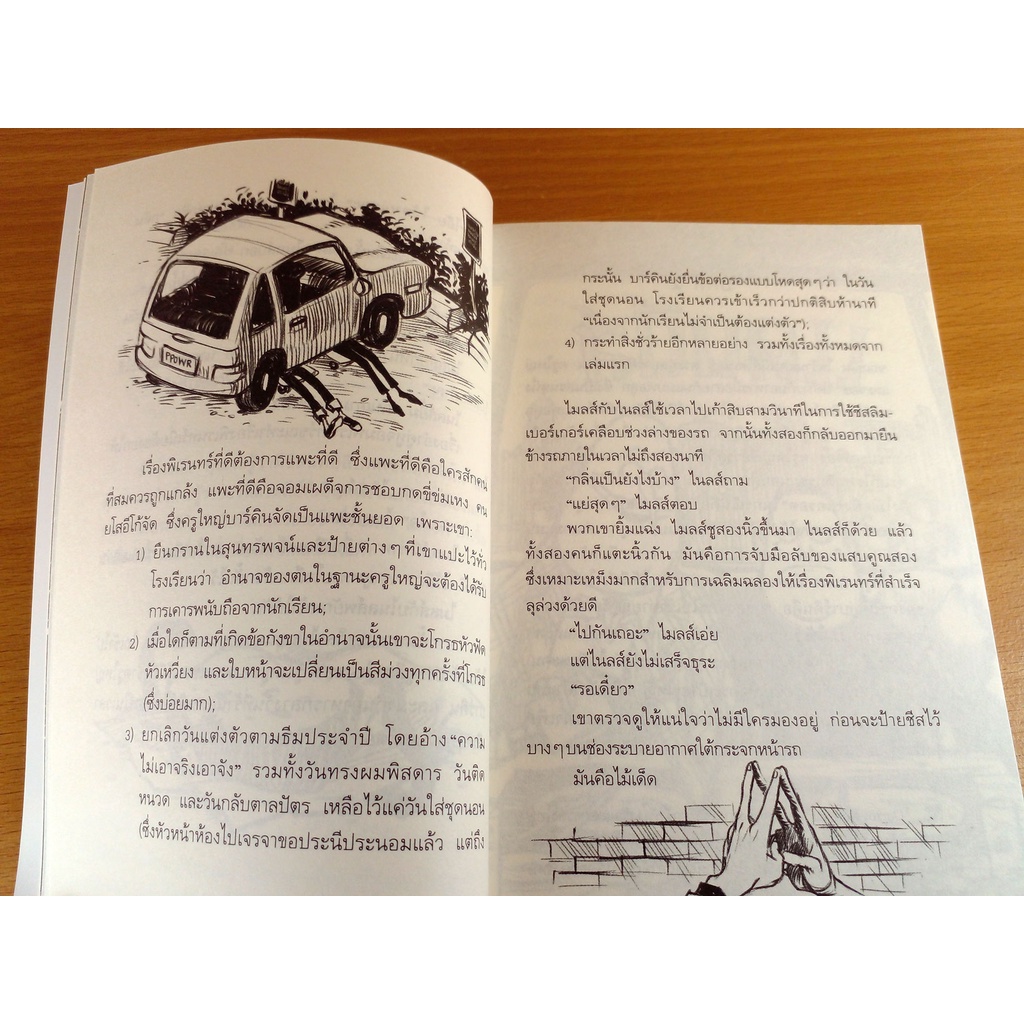 PPOWR
เรื่องพิเรนทร์ที่ดีต้องการแพะที่ดี ซึ่งแพะที่ดีคือใครสักคน
ที่สมควรถูกแกล้ง แพะที่ดีคือจอมเผด็จการชอบกดขี่ข่มเหง คน
ยโสอีโก้จัด ซึ่งครูใหญ่บาร์คินจัดเป็นแพะชั้นยอด เพราะเขา:
1) ยืนกรานในสุนทรพจน์และป้ายต่างๆ ที่เขาแปะไว้ทั่ว
โรงเรียนว่า อำนาจของตนในฐานะครูใหญ่จะต้องได้รับ
การเคารพนับถือจากนักเรียน;
2) เมื่อใดก็ตามที่เกิดข้อกังขาในอำนาจนั้นเขาจะโกรธหัวฟัด
หัวเหวี่ยง และใบหน้าจะเปลี่ยนเป็นสีม่วงทุกครั้งที่โกรธ
(ซึ่งบ่อยมาก);
3) ยกเลิกวันแต่งตัวตามธีมประจำปี โดยอ้าง “ความ
ไม่เอาจริงเอาจัง” รวมทั้งวันทรงผมพิสดาร วันติด
หนวด และวันกลับตาลปัตร เหลือไว้แค่วันใส่ชุดนอน
(ซึ่งหัวหน้าห้องไปเจรจาขอประนีประนอมแล้ว แต่ถึง
กระนั้น บาร์คินยังยื่นข้อต่อรองแบบโหดสุดๆ ว่า ในวัน
ใส่ชุดนอน โรงเรียนควรเข้าเร็วกว่าปกติสิบห้านาที
“เนื่องจากนักเรียนไม่จำเป็นต้องแต่งตัว”);
4) กระทำสิ่งชั่วร้ายอีกหลายอย่าง รวมทั้งเรื่องทั้งหมดจาก
เล่มแรก
ไมลส์กับไนลส์ใช้เวลาไปเก้าสิบสามวินาทีในการใช้ชีสลิม-
เบอร์เกอร์เคลือบช่วงล่างของรถ จากนั้นทั้งสองก็กลับออกมายืน
ข้างรถภายในเวลาไม่ถึงสองนาที
“กลิ่นเป็นยังไงบ้าง” ไนลส์ถาม
“แย่สุดๆ” ไมลส์ตอบ
พวกเขายิ้มแฉ่ง ไมลส์ชูสองนิ้วขึ้นมา ไนลส์ก็ด้วย แล้ว
ทั้งสองคนก็แตะนิ้วกัน มันคือการจับมือลับของแสบคูณสอง
ซึ่งเหมาะเหม็งมากสำหรับการเฉลิมฉลองให้เรื่องพิเรนทร์ที่สำเร็จ
ลุล่วงด้วยดี
“ไปกันเถอะ” ไมลส์เอ่ย
แต่ไนลส์ยังไม่เสร็จธุระ
“รอเดี๋ยว”
เขาตรวจดูให้แน่ใจว่าไม่มีใครมองอยู่ ก่อนจะป้ายชีสไว้
บางๆ บนช่องระบายอากาศใต้กระจกหน้ารถ
มันคือไม้เด็ด